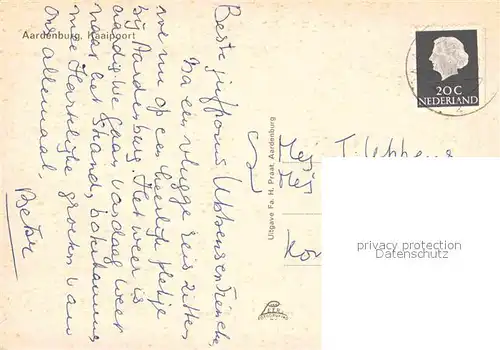 Aardenburg, Kaaipoort
Beste juffrouw Ubbens en Trienke,
Na een vlugge reis zitten
we nu op een heerlijk plekje
bij Aardenburg. Het weer is
aardig. We gaan vandaag weer
naar het strand,
Hartelijke groeten van
ons allemaal,
Uitgave Fa. H. Praat, Aardenburg
20 C
NEDERLAND
Mej. T. Ubbens
Mej
privacy protection
Datenschutz